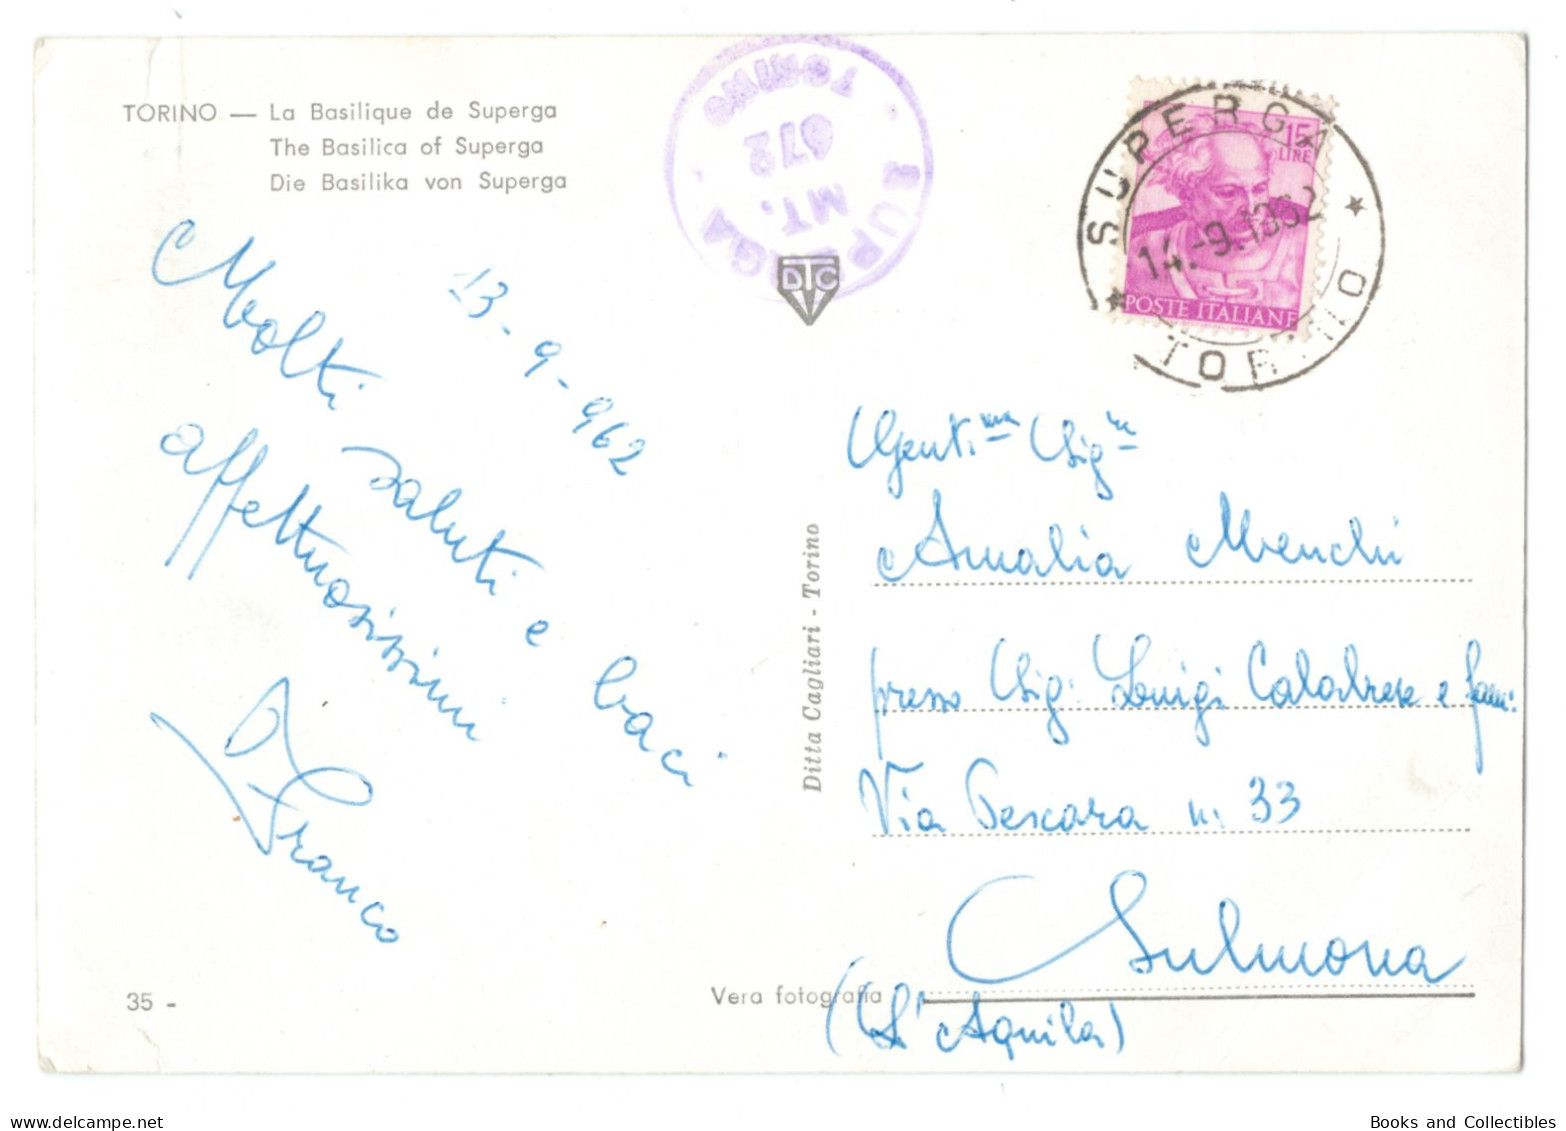 TORINO — La Basilique de Superga
The Basilica of Superga
Die Basilika von Superga
SUPERGA
MT.
672
TORINO
DTC
15
LIRE
POSTE ITALIANE
SUPERGA
14.-9.1962
TORINO
13-9-962
Molti saluti e baci
affettuosissimi
Franco
Genti.ma Sig.ra
Amalia Menchi
presso Sig: Luigi Calabrese e fam:
Via Pescara n. 33
Sulmona
(L'Aquila)
Ditta Cagliari - Torino
35 -
Vera fotografia
Books and Collectibles